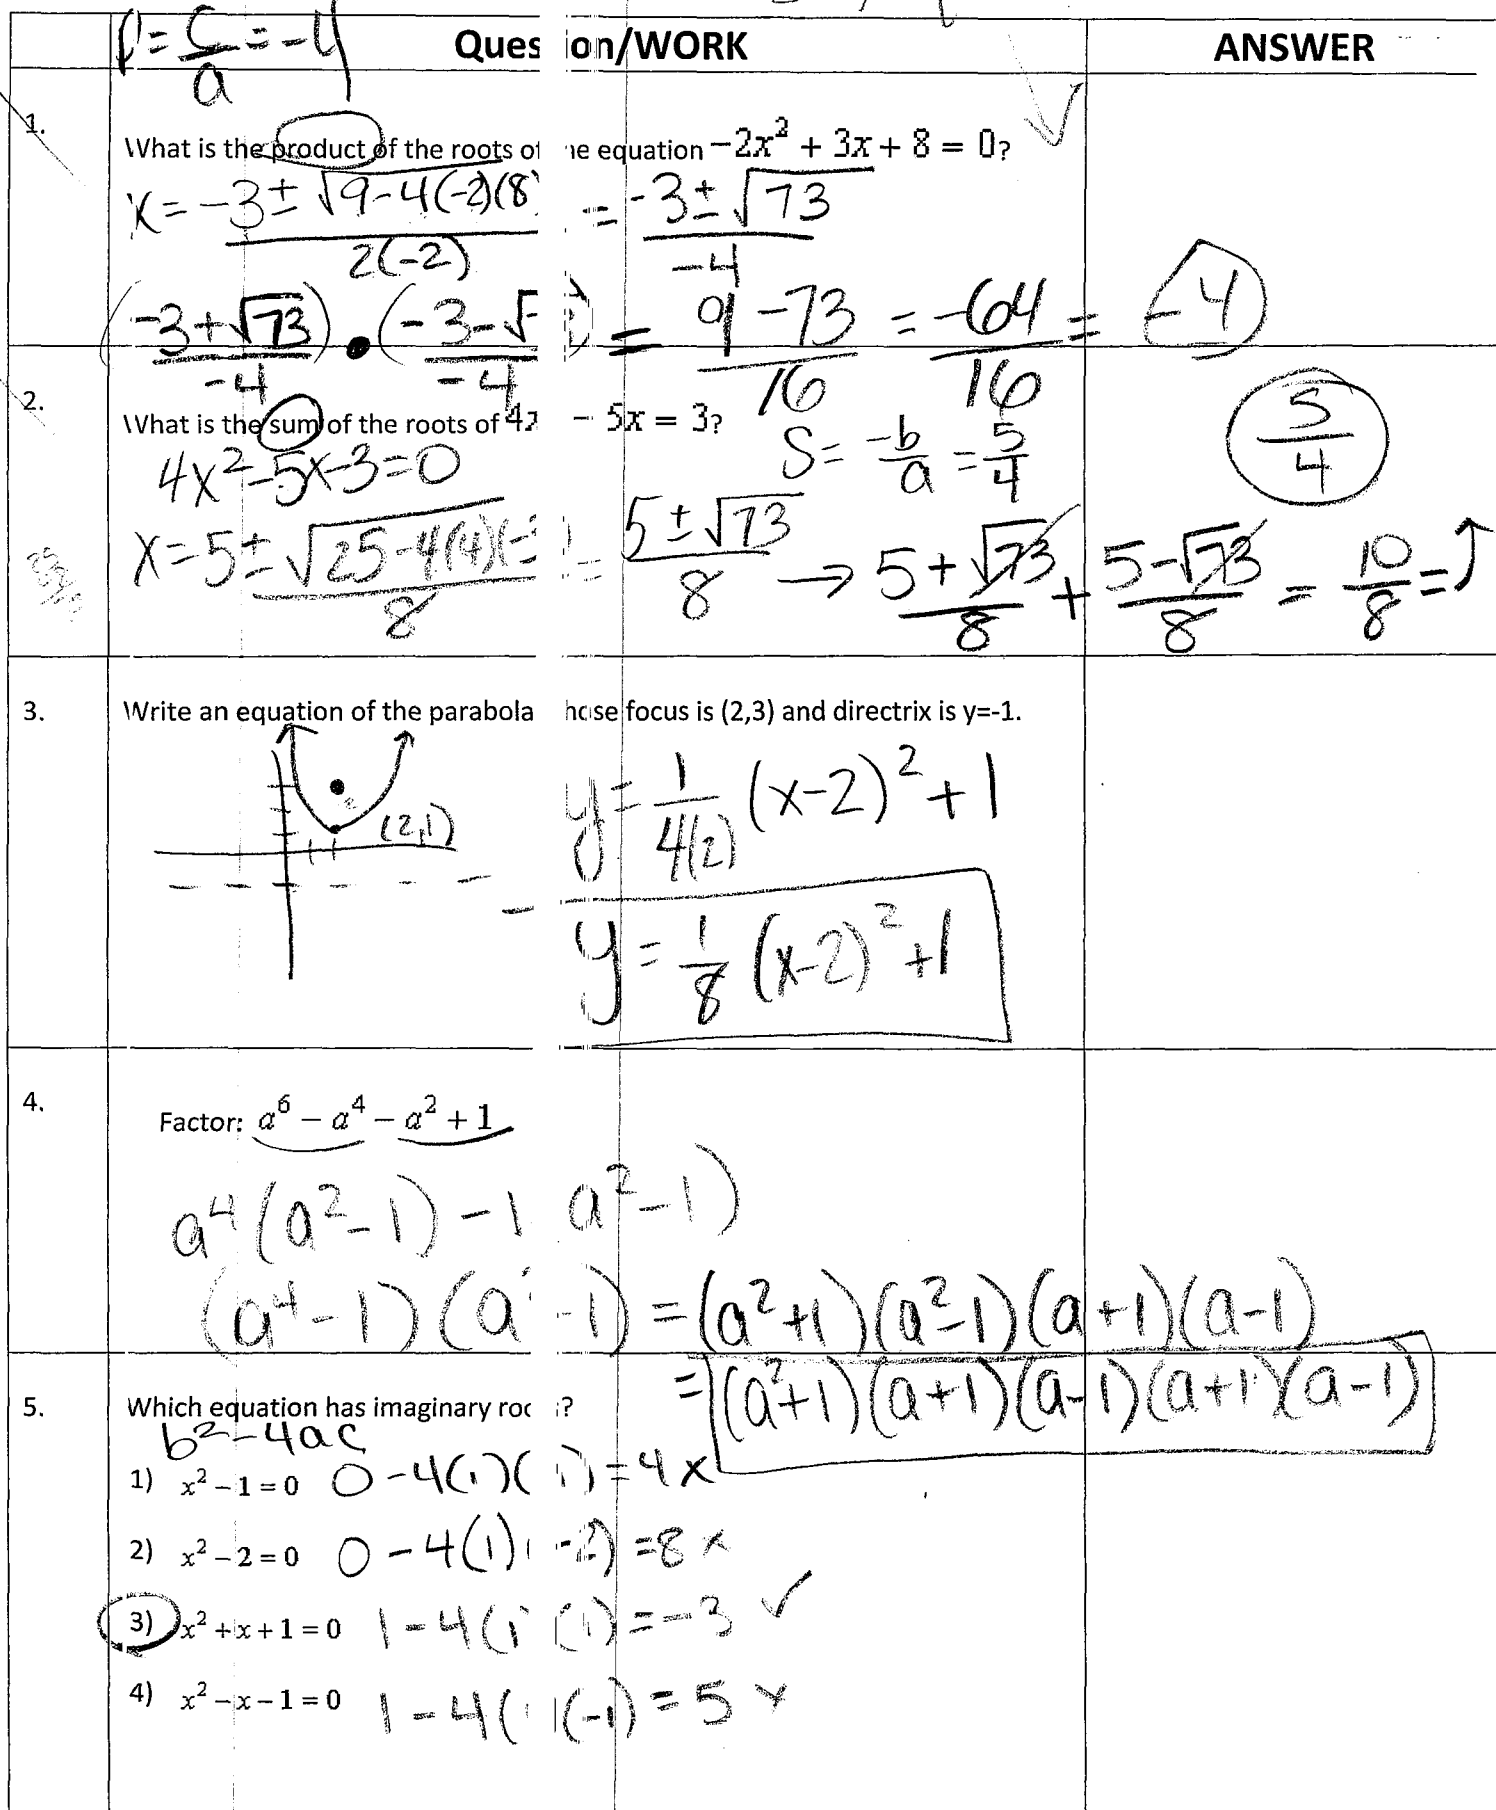 P = c/a = -4
Ques ion/WORK ANSWER
1.
What is the product of the roots of he equation -2x² + 3x + 8 = 0?
x = (-3 ± √(9-4(-2)(8)) / 2(-2) = (-3 ± √73) / -4
((-3+√73) / -4) • ((-3-√ ) / -4) = (9-73) / 16 = -64 / 16 = -4
2.
What is the sum of the roots of 4x - 5x = 3?
S = -b/a = 5/4
5/4
4x² - 5x - 3 = 0
x = 5 ± √(25-4(4)(-3 / 8 = (5 ± √73) / 8 → (5+√73) / 8 + (5-√73) / 8 = 10/8 = ↑
3. Write an equation of the parabola hose focus is (2,3) and directrix is y=-1.
(2,1)
y = 1/4(2) (x-2)² + 1
y = 1/8 (x-2)² + 1
4. Factor: a⁶ - a⁴ - a² + 1
a⁴(a²-1) - 1 a²-1)
(a⁴-1)(a -1) = (a²+1)(a²-1)(a+1)(a-1)
= (a²+1)(a+1)(a-1)(a+1)(a-1)
5. Which equation has imaginary roo s?
b²-4ac
1) x² - 1 = 0 0-4(1)( 1) = 4 x
2) x² - 2 = 0 0-4(1)( -2) = 8 x
3) x² + x + 1 = 0 1-4(1 (1) = -3 ✓
4) x² - x - 1 = 0 1-4( )(-1) = 5 x